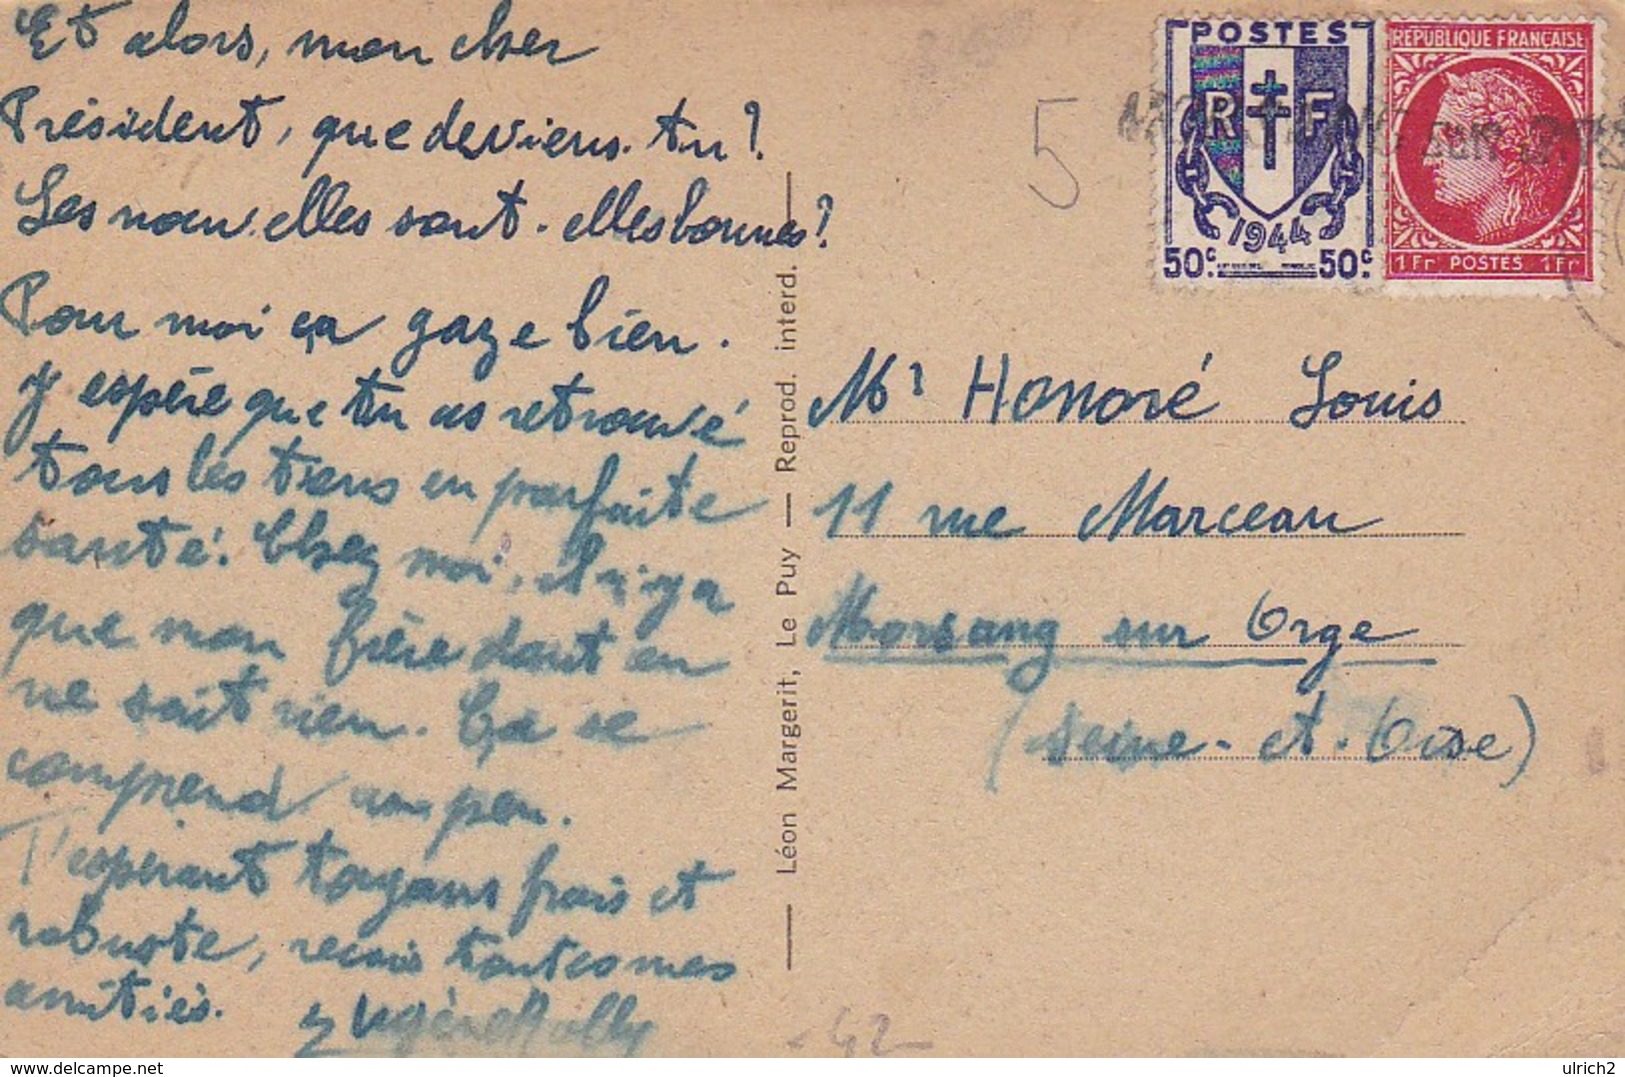 Et alors, mon cher
Président, que deviens-tu?
Les nouvelles sont-elles bonnes?
Pour moi ça gaze bien.
J'espère que tu as retrouvé
tous les tiens en parfaite
santé. Chez moi, il n'y a
que mon frère dont on
ne sait rien. Ça se
comprend un peu.
T'espérant toujours frais et
robuste, reçois toutes mes
amitiés.
Eugène
Léon Margerit, Le Puy — Reprod. interd.
5
POSTES
R F
1944
50c. 50c.
REPUBLIQUE FRANÇAISE
1Fr POSTES 1Fr
SUR
Mr Honoré Louis
11 rue Marceau
Morsang sur Orge
(Seine-et-Oise)
-42-
delcampe.net
ulrich2